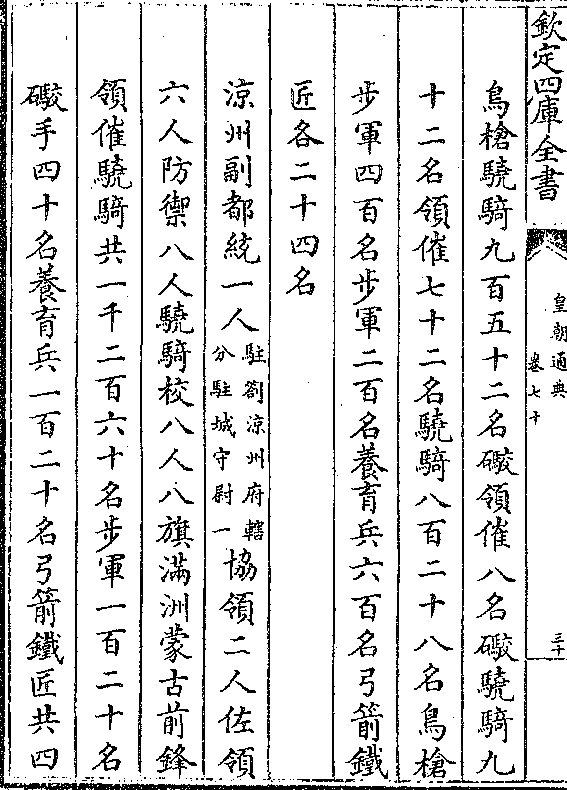 欽定四庫全書
皇朝通典
卷七十
三十
鳥槍驍騎九百五十二名礮領催八名礮驍騎九
十二名領催七十二名驍騎八百二十八名鳥槍
步軍四百名步軍二百名養育兵六百名弓箭鐵
匠各二十四名
涼州副都統一人駐劄涼州府轄分駐城守尉一協領二人佐領
六人防禦八人驍騎校八人八旗滿洲蒙古前鋒
領催驍騎共一千二百六十名步軍一百二十名
礮手四十名養育兵一百二十名弓箭鐵匠共四